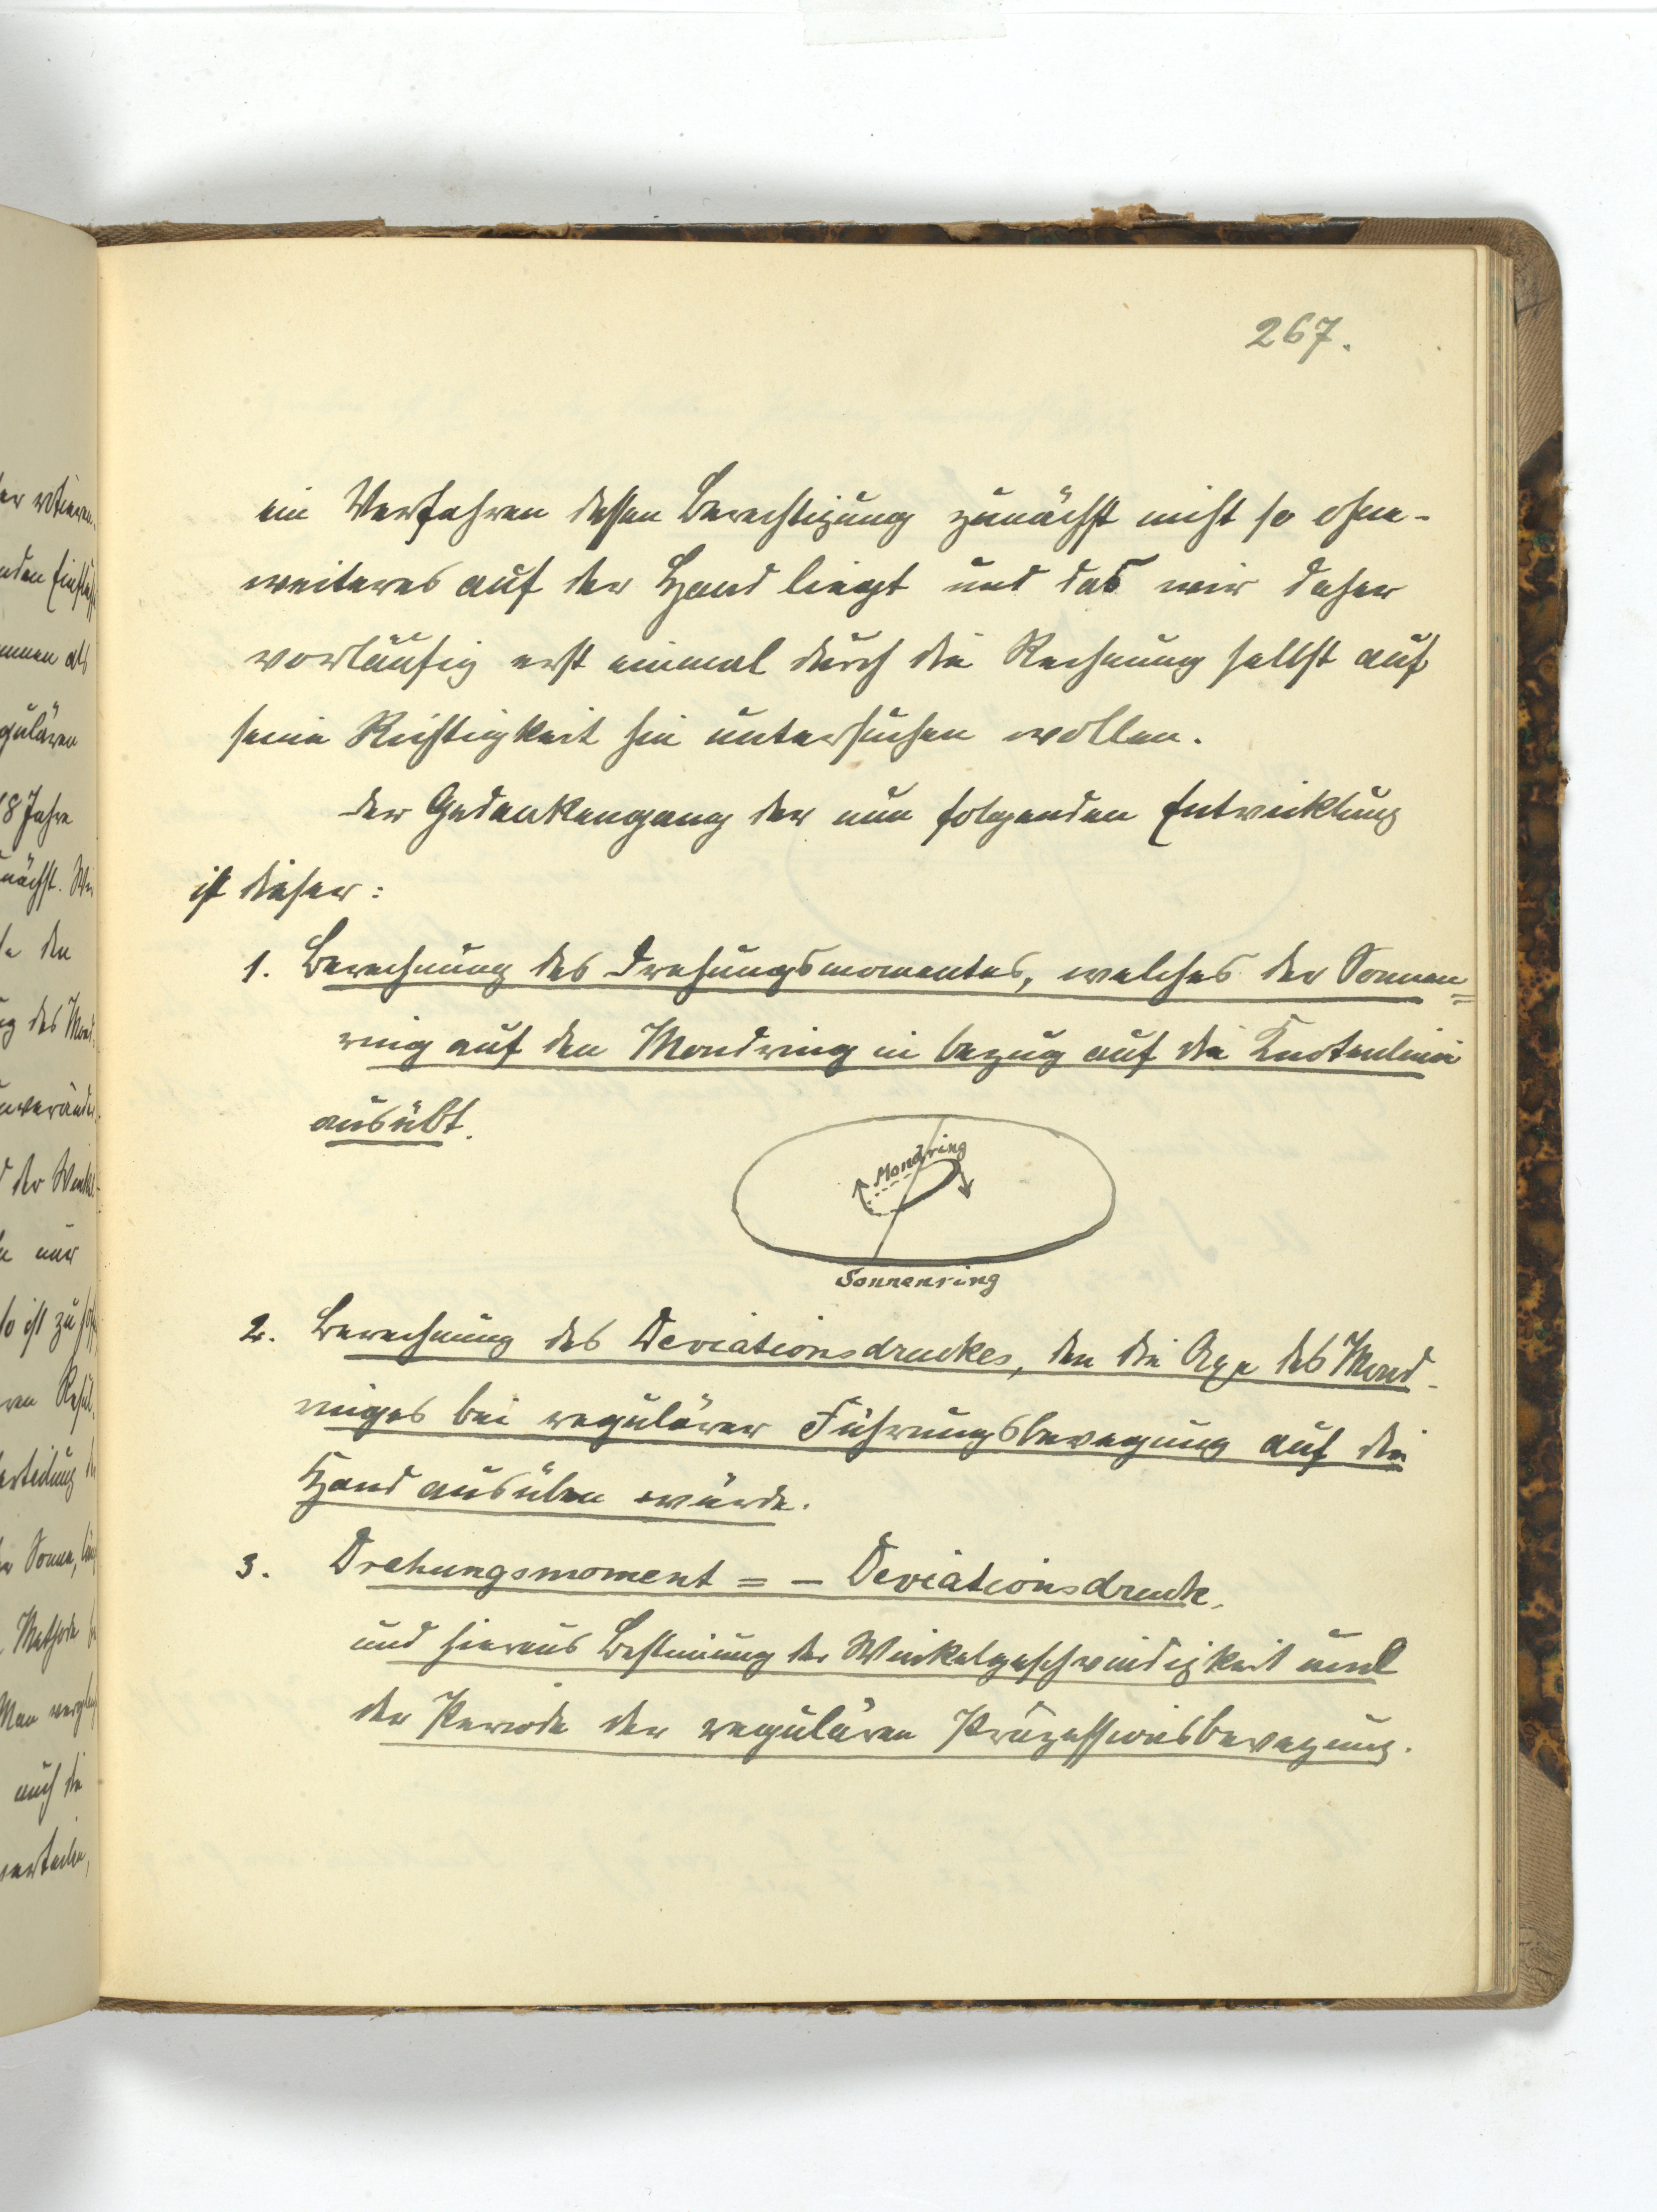 267.
ein Verfahren dessen Berechtigung zunächst nicht so ohne-
weiteres auf der Hand liegt und das wir daher
vorläufig erst einmal durch die Rechnung selbst auf
seine Richtigkeit hin untersuchen wollen.
Der Gedankengang der nun folgenden Entwicklung
ist dieser:
1. Berechnung des Drehungsmomentes, welches der Sonnen=
ring auf den Mondring in bezug auf die Knotenlinie
ausübt.
Mondring
Sonnenring
2. Berechnung des Deviationsdruckes, den die Axe des Mond-
ringes bei regulärer Führungsbewegung auf die
Hand ausüben würde.
3. Drehungsmoment = – Deviationsdruck,
und hieraus Bestimung der Winkelgeschwindigkeit und
der Periode der regulären Präzessionsbewegung.
er rotieren-
nden
als
gulären
18 Jahre
nächst. Wir
den
g des Mond-
der Winkel-
nur
so ist zu
Sonne,
Methode
Man
auch die